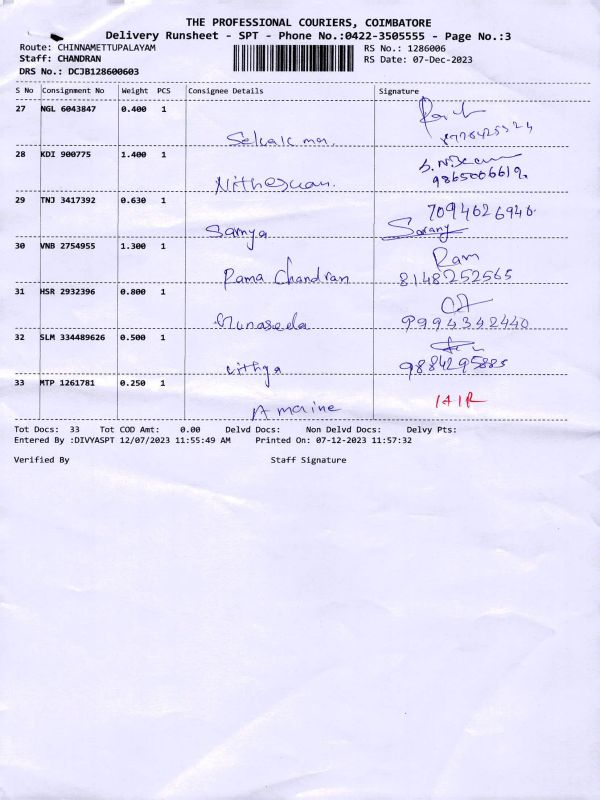 THE PROFESSIONAL COURIERS, COIMBATORE
Delivery Runsheet - SPT - Phone No.:0422-3505555 - Page No.:3
Route: CHINNAMETTUPALAYAM RS No.: 1286006
Staff: CHANDRAN RS Date: 07-Dec-2023
DRS No.: DCJB128600603
S No Consignment No Weight PCS Consignee Details Signature
27 NGL 6043847 0.400 1
28 KDI 900775 1.400 1
Nitheswan. 9865006619.
29 TNJ 3417392 0.630 1 7094626946.
Samya Sarany
30 VNB 2754955 1.300 1 Ram
Rama Chandran 8148252565
31 HSR 2932396 0.800 1
Gunaseela 9994342440
32 SLM 334489626 0.500 1
Vithya 9884295885
33 MTP 1261781 0.250 1
A maine
Tot Docs: 33 Tot COD Amt: 0.00 Delvd Docs: Non Delvd Docs: Delvy Pts:
Entered By :DIVYASPT 12/07/2023 11:55:49 AM Printed On: 07-12-2023 11:57:32
Verified By Staff Signature